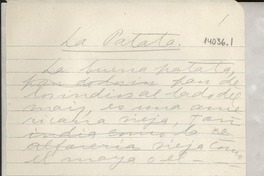 1
La Patata.
14036.1
La buena patata,
pan de
los indios al lado del
maíz, es una ame
ricana vieja, tan
india como la
alfarería vieja como
el maya o el